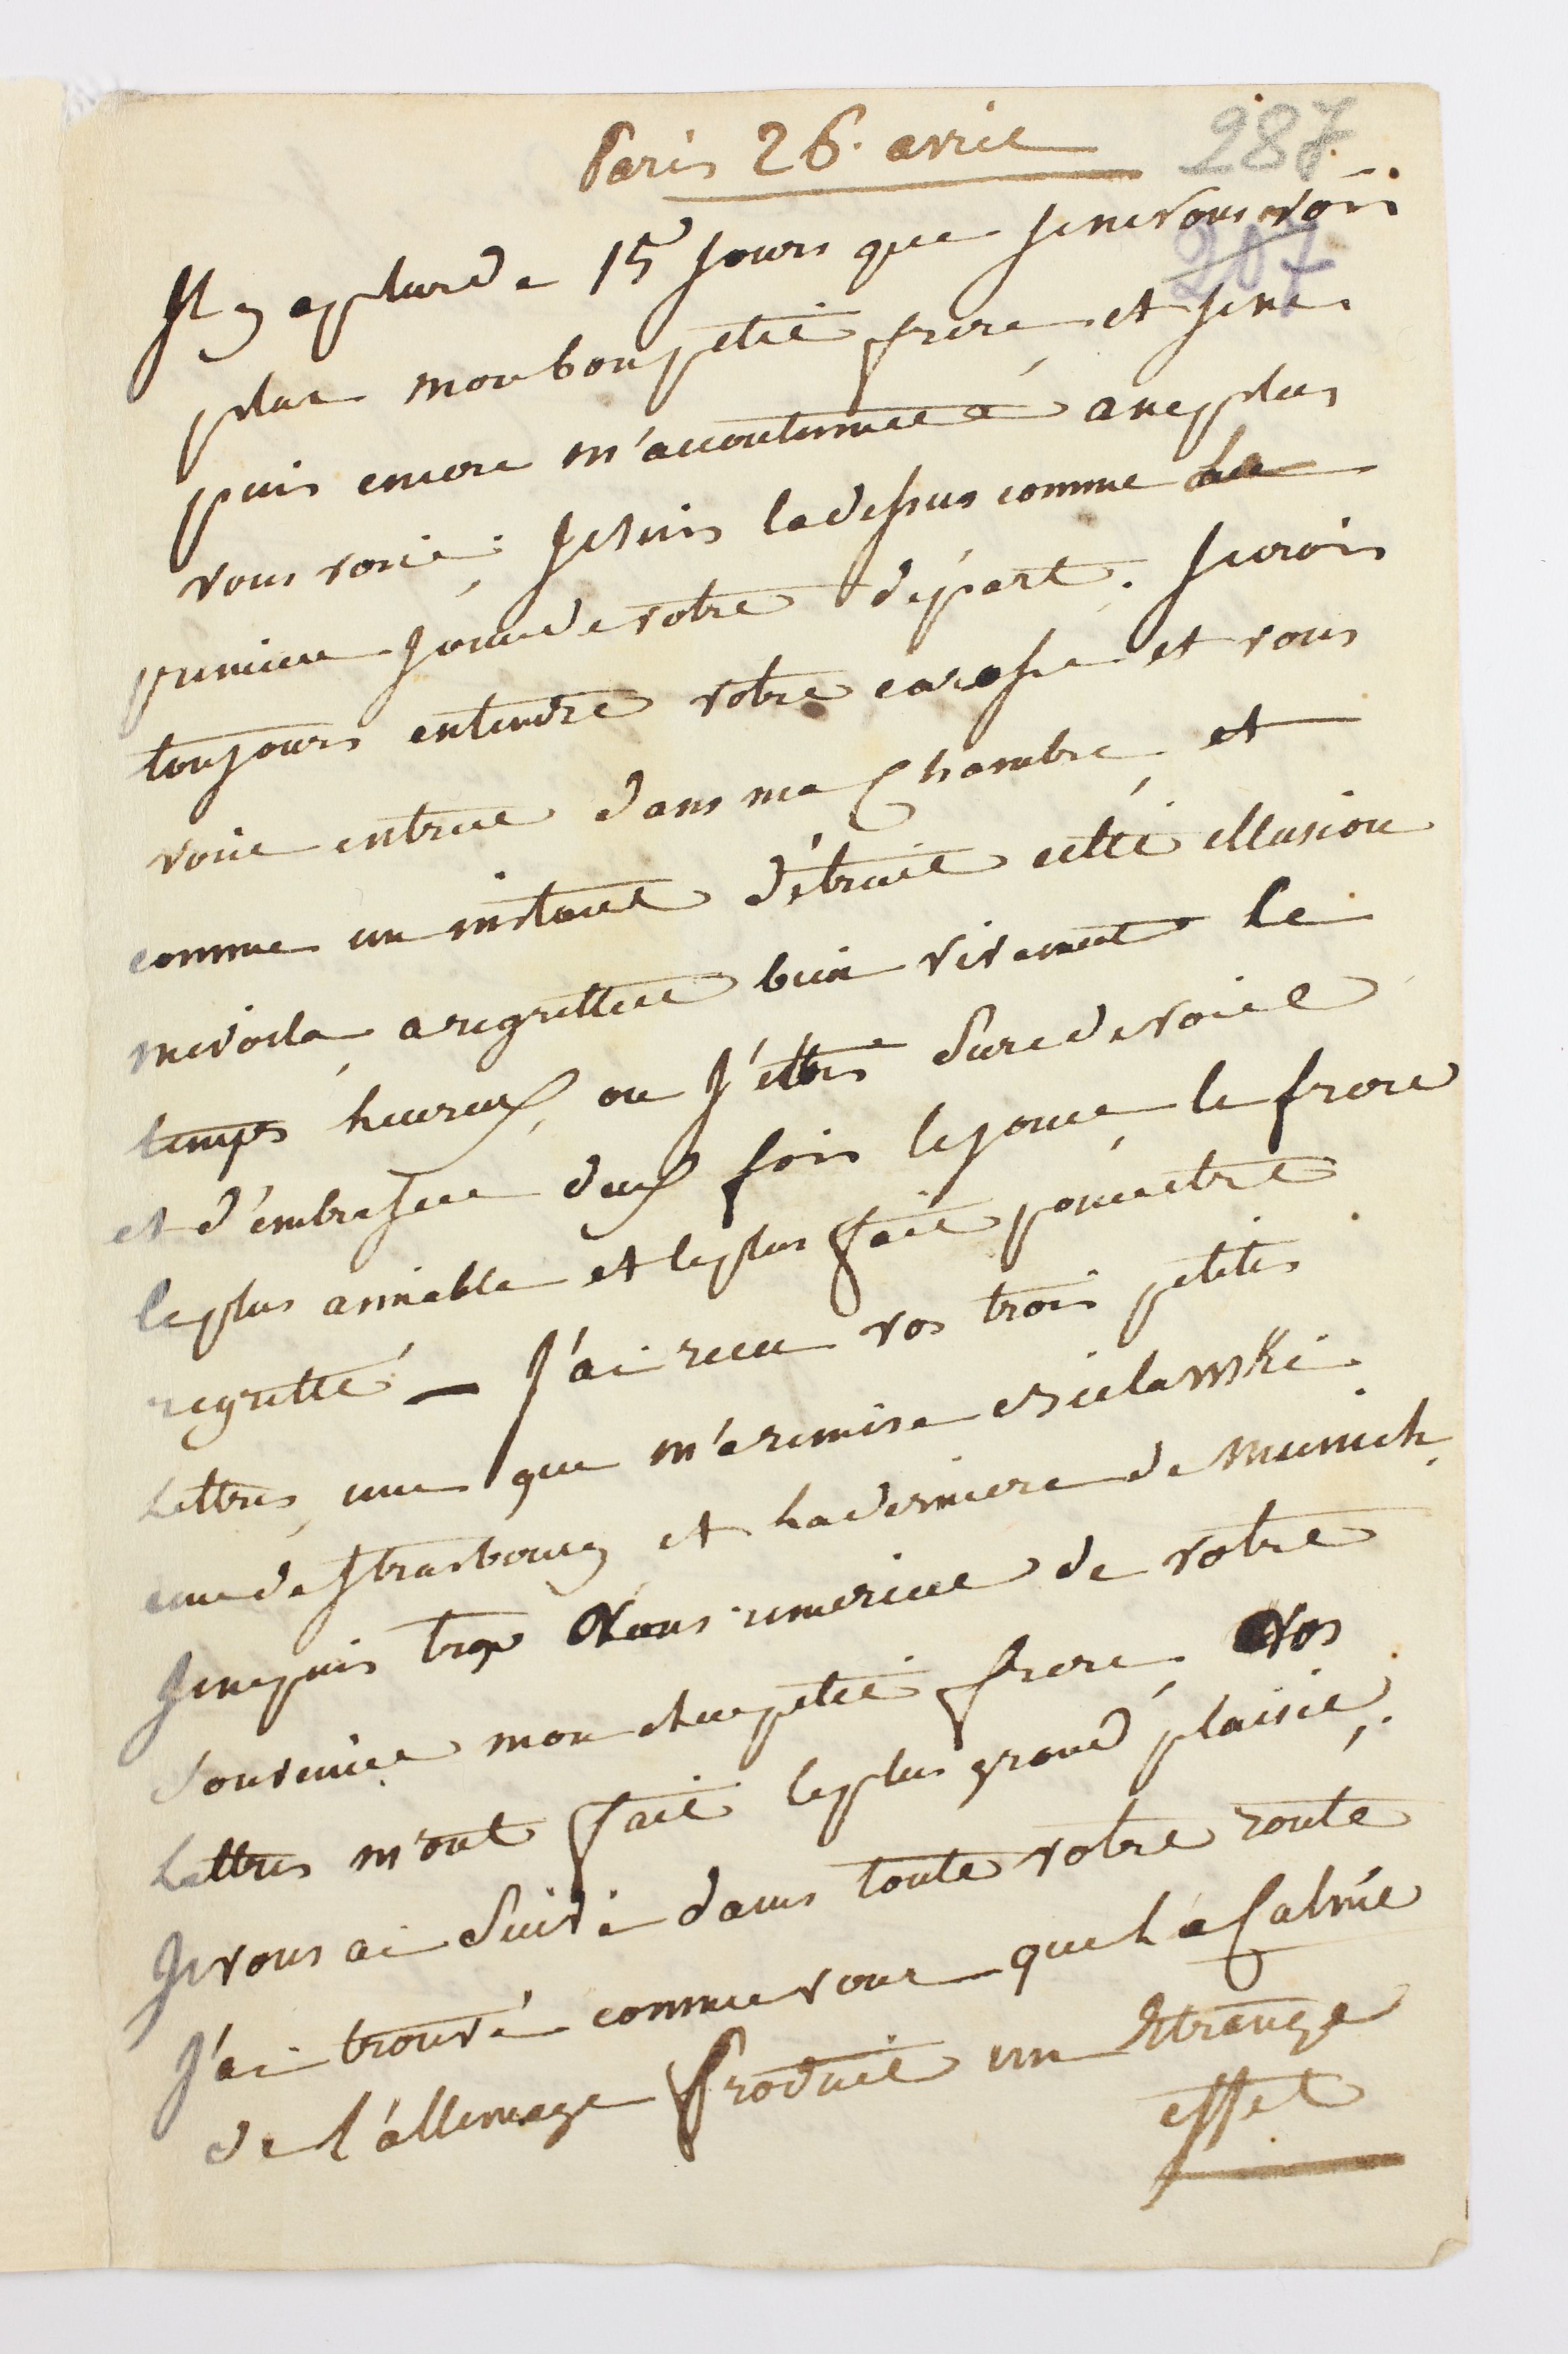 Paris 26. avril
287
207
Il y a plus de 15 jours que je ne vous vois
plus mon bon petit frere et je ne
puis encore m'accoutumer à ne plus
vous voir: Je suis la dessus comme le
premier jour de votre départ. Je crois
toujours entendre votre carosse et vous
voir entrer dans ma Chambre, et
comme un instant détruit cette illusion
me voila a regretter bien vivement le
temps heureux, ou j'étois sure de voir
et d'embrasser deux fois le jour, le frere
le plus aimable et le plus fait pour etre
regretté — J'ai recu vos trois petites
Lettres, une que m'a remise Bielawski
une de Strasbourg et la derniere de Munich,
Je ne puis trop Vous remercier de votre
Souvenir mon cher petit frere, Vos
Lettres m'ont fait le plus grand plaisir,
Je vous ai Suivi dans toute votre route
J'ai trouvé comme vous que la Calme
de l'allemagne Produit un Etrange
effet